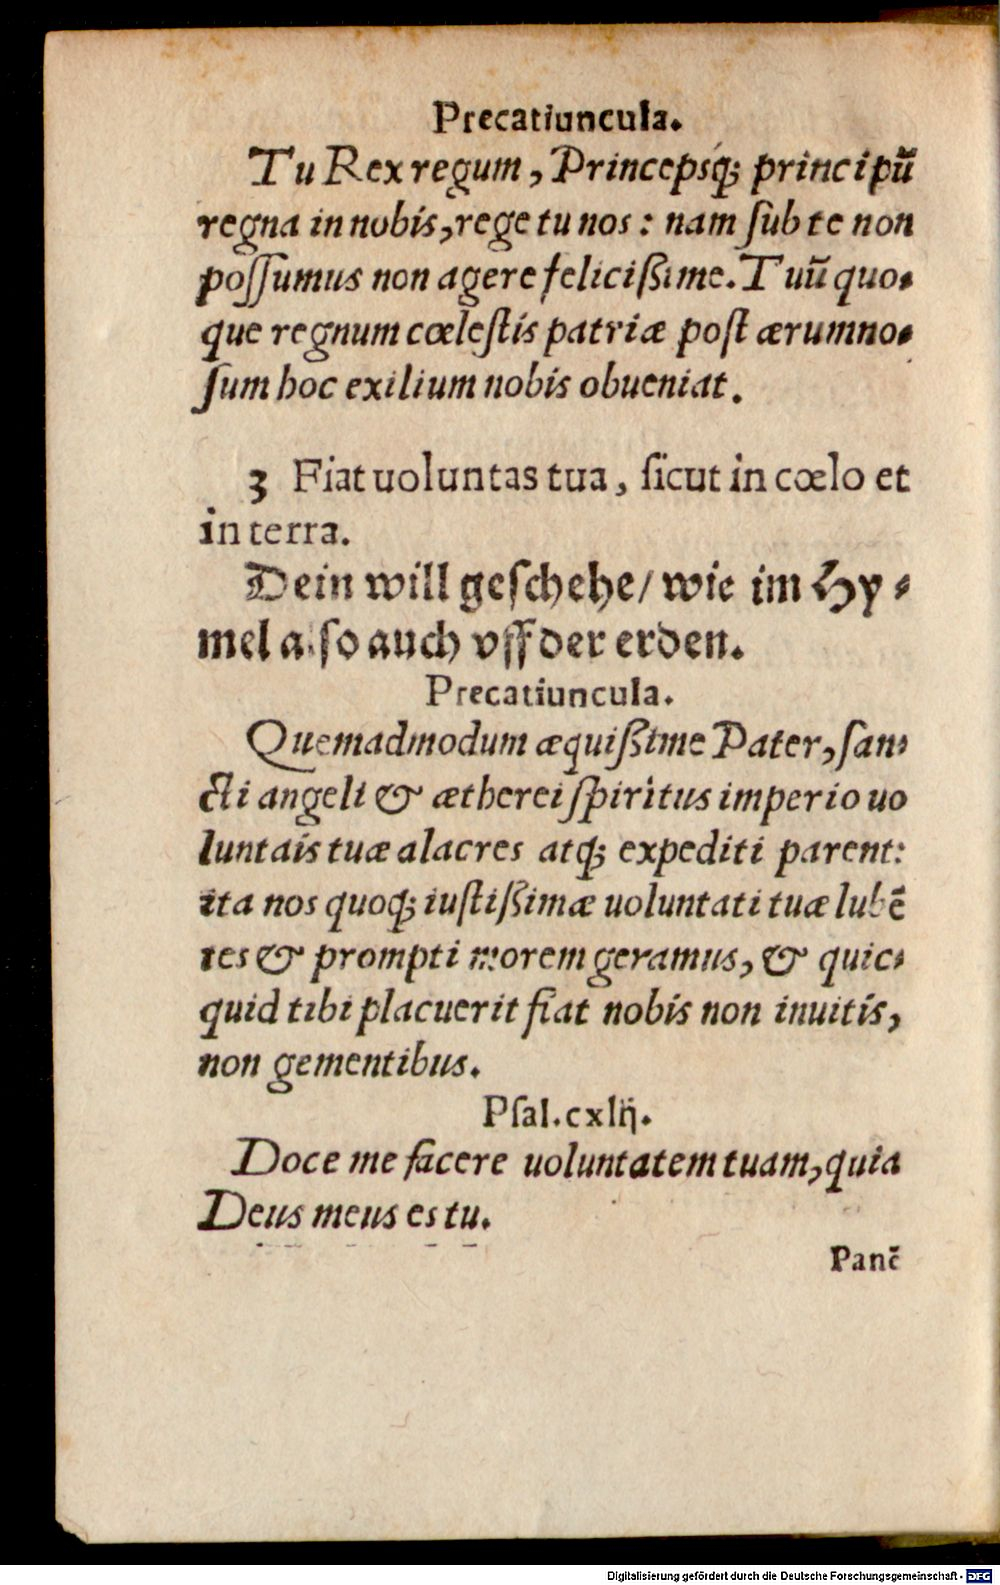 Precatiuncula.
Tu Rex regum, Princepsq́; principū
regna in nobis, rege tu nos: nam ſub te non
poſſumus non agere feliciſsime. Tuū quo-
que regnum cœleſtis patriæ poſt ærumno-
ſum hoc exilium nobis obueniat.
3 Fiat uoluntas tua, ſicut in cœlo et
in terra.
Dein will geſchehe/ wie im Hy-
mel alſo auch vff der erden.
Precatiuncula.
Quemadmodum æquiſsime Pater, ſan-
cti angeli & ætherei ſpiritus imperio uo
luntais tuæ alacres atq; expediti parent:
ita nos quoq; iuſtiſsimæ uoluntati tuæ lubē
tes & prompti morem geramus, & quic-
quid tibi placuerit fiat nobis non inuitis,
non gementibus.
Pſal. cxlij.
Doce me facere uoluntatem tuam, quia
Deus meus es tu.
Panē
Digitalisierung gefördert durch die Deutsche Forschungsgemeinschaft - DFG